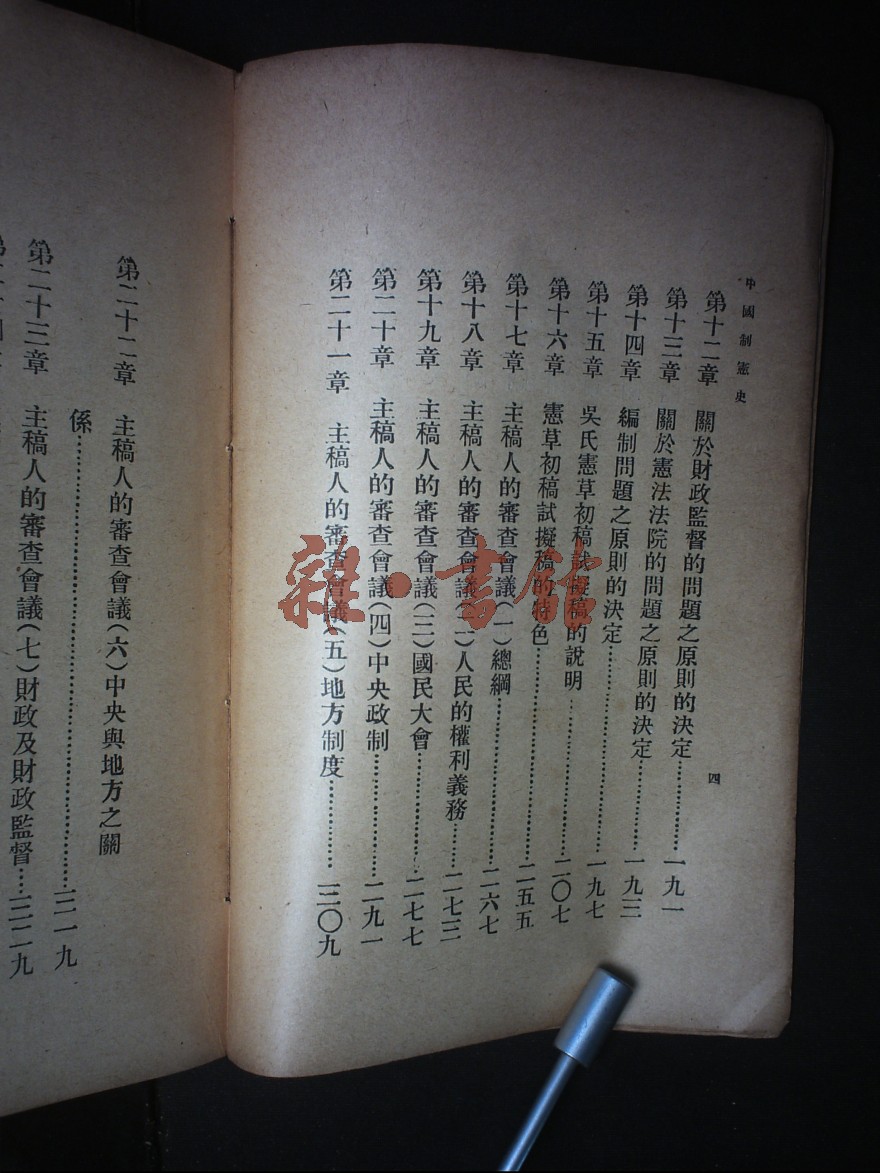 中國制憲史
四
第十二章 關於財政監督的問題之原則的決定……一九一
第十三章 關於憲法法院的問題之原則的決定……一九三
第十四章 編制問題之原則的決定……一九七
第十五章 吳氏憲草初稿試擬稿的說明……二〇七
第十六章 憲草初稿試擬稿的特色……二五五
第十七章 主稿人的審查會議(一)總綱……二六七
第十八章 主稿人的審查會議(二)人民的權利義務……二七三
第十九章 主稿人的審查會議(三)國民大會……二七七
第二十章 主稿人的審查會議(四)中央政制……二九一
第二十一章 主稿人的審查會議(五)地方制度……三〇九
第二十二章 主稿人的審查會議(六)中央與地方之關
係……三一九
第二十三章 主稿人的審查會議(七)財政及財政監督……三二九
雜·書館